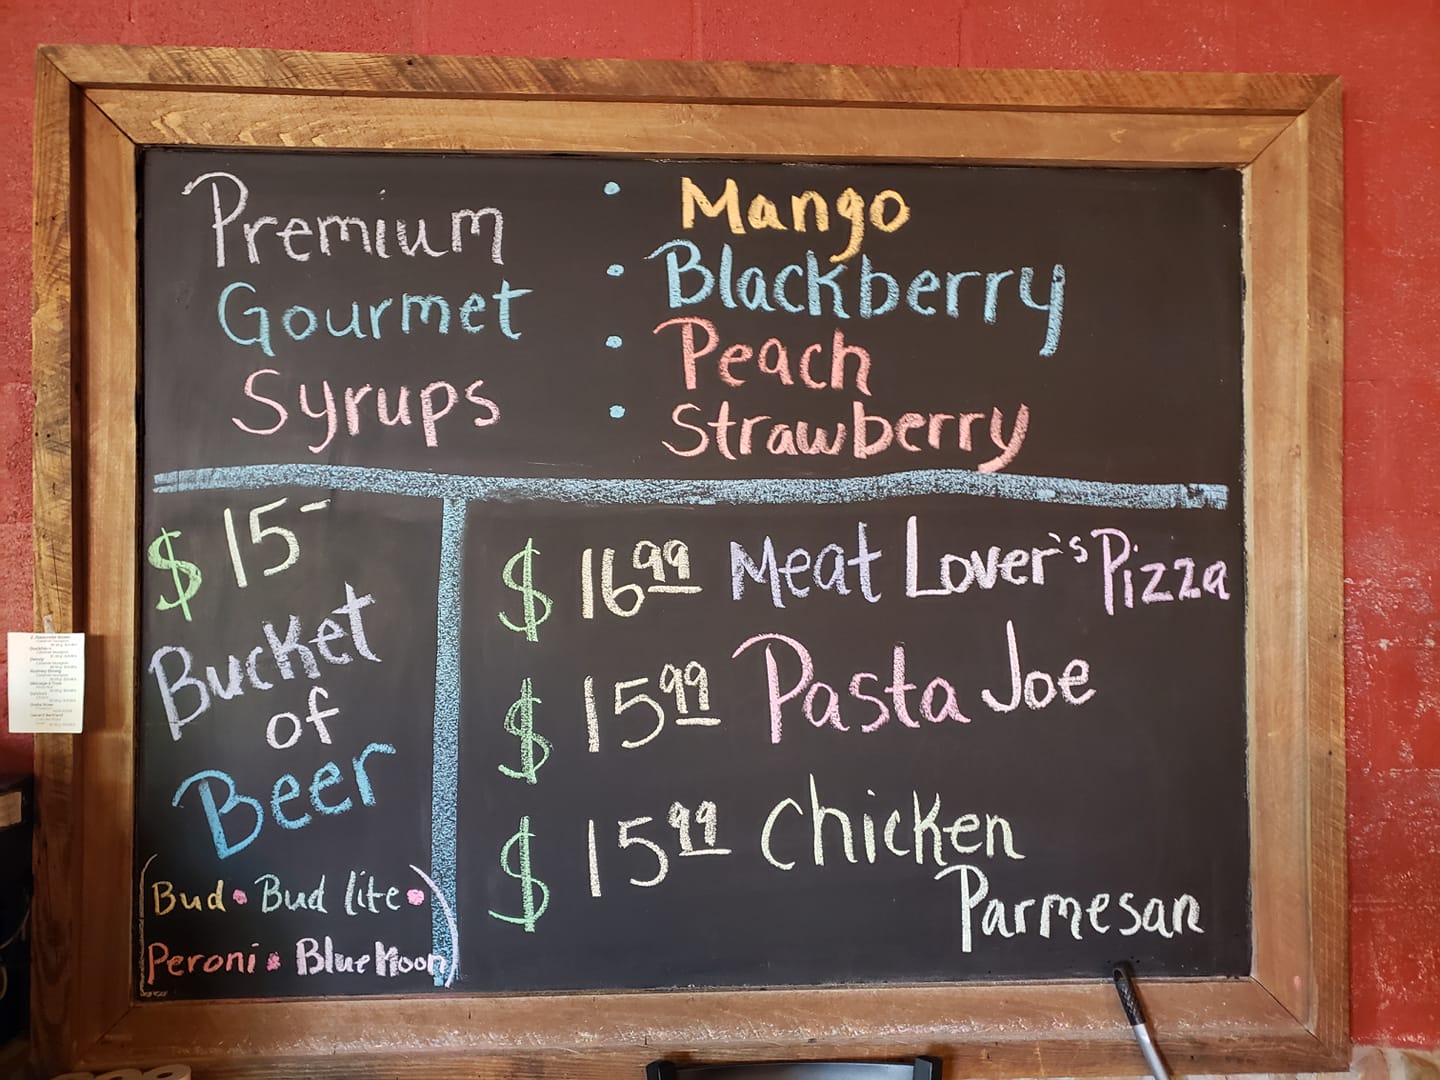 Premium
Gourmet
Syrups
• Mango
• Blackberry
• Peach
• Strawberry
$ 15-
Bucket
of
Beer
(Bud • Bud lite •
Peroni • Blue Moon)
$ 16 99 Meat Lover's Pizza
$ 15 99 Pasta Joe
$ 15 99 Chicken
Parmesan